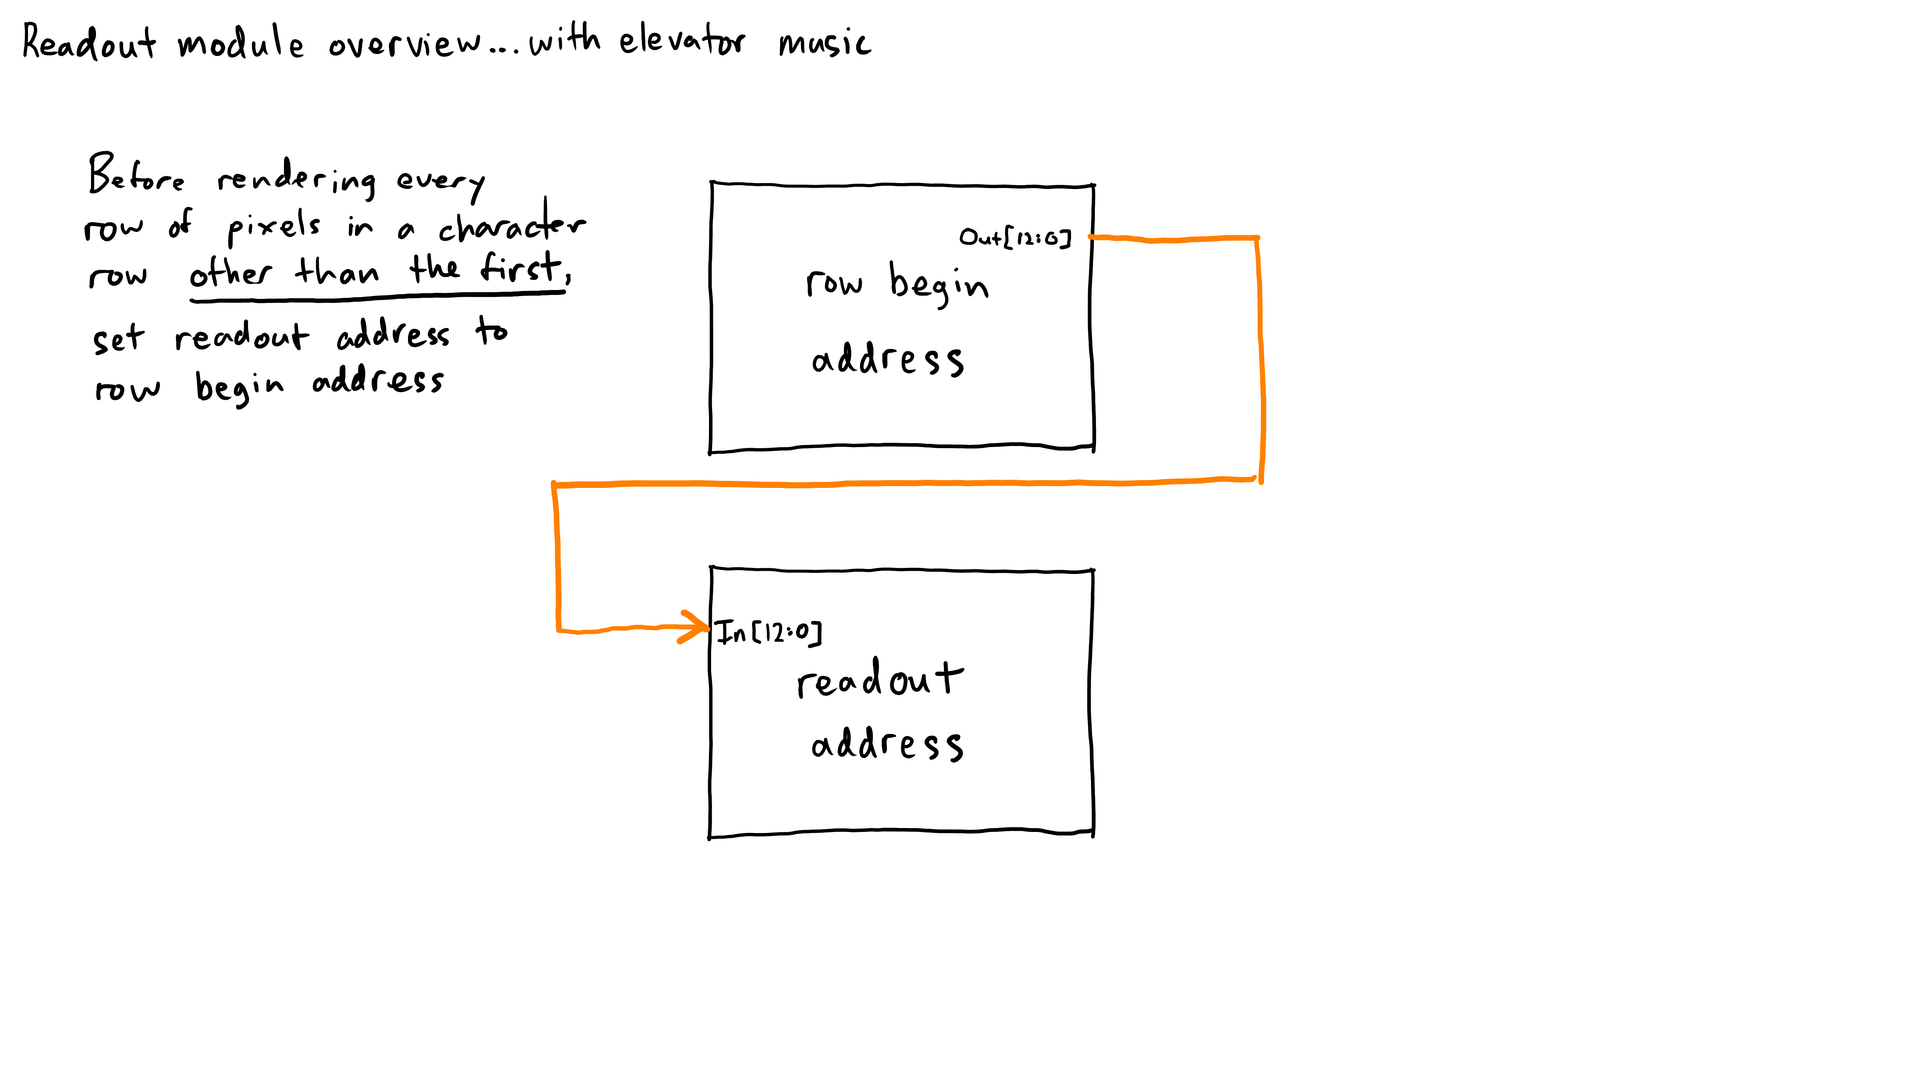 Readout module overview...with elevator music
Before rendering every
row of pixels in a character
row other than the first,
set readout address to
row begin address
Out[12:0]
row begin
address
In[12:0]
readout
address